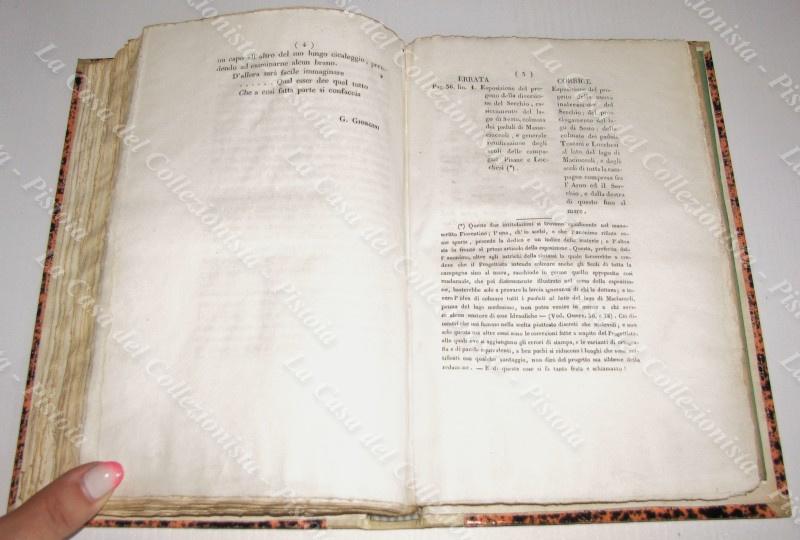 ( 4 )
un capo all'altro del suo lungo cicaleggio, pren-
dendo ad esaminarne alcun brano.
D'allora sarà facile immaginare
. . . . . . Qual esser dee quel tutto
Che a così fatta parte si confaccia
G. GIORGINI
( 5 )
ERRATA
Pag. 56. lin. 4. Esposizione del pro-
getto della diversio-
ne del Serchio,
sciccamento del la-
go di Sesto, colmata
dei paduli di Massa-
ciuccoli, e generale
rettificazione degli
scoli delle campa-
gne Pisane e Luc-
chesi (*).
CORRIGE.
Esposizione del pro-
getto della nuova
inalveazione del
Serchio; del pro-
sciugamento del la-
go di Sesto; della
colmata dei paduli
Toscani e Lucchesi
al lato del lago di
Maciuccoli, e degli
scoli di tutta la cam-
pagna compresa fra
l'Arno ed il Ser-
chio, e dalla destra
di questo fino al
mare.
(*) Queste due intitolazioni si trovano egualmente nel mano-
scritto Fiorentino; l'una, ch'io scelsi, e che l'anonimo rifiuta co-
me spuria, precede la dedica e un indice delle materie; e l'altra
sta in fronte al primo articolo della esposizione. Questa, preferita dal-
l'anonimo, oltre agli intrichi della sintassi la quale farebbe a
credere che il Progettista intenda colmare anche gli Scoli di tutta la
campagna sino al mare, racchiude in germe quello sproposito così
madornale, che poi distesamente illustrato nel corso della esposizio-
ne, basterebbe solo a provare la lercia ignoranza di chi la dettava; e
l'idea di colmare tutti i paduli al lato del lago di Maciuccoli,
prima del lago medesimo, non potea venire in mente a chi
alcun sentore di cose Idrauliche — (Ved. Osserv. 56, e 58). Ciò
dimostri che noi fummo nella scelta piuttosto discreti che Malevoli; e
se alle quali ove si aggiungano gli errori di stampa, e le varianti di ortogra-
fia e di parole equivalenti, a ben pochi si riducono i luoghi che
con qualche vantaggio, non dirò del progetto ma sibbene della
redazione. — E di queste cose si fa tanta festa e schiamazzo!
La Casa del Collezionista - Pistoia